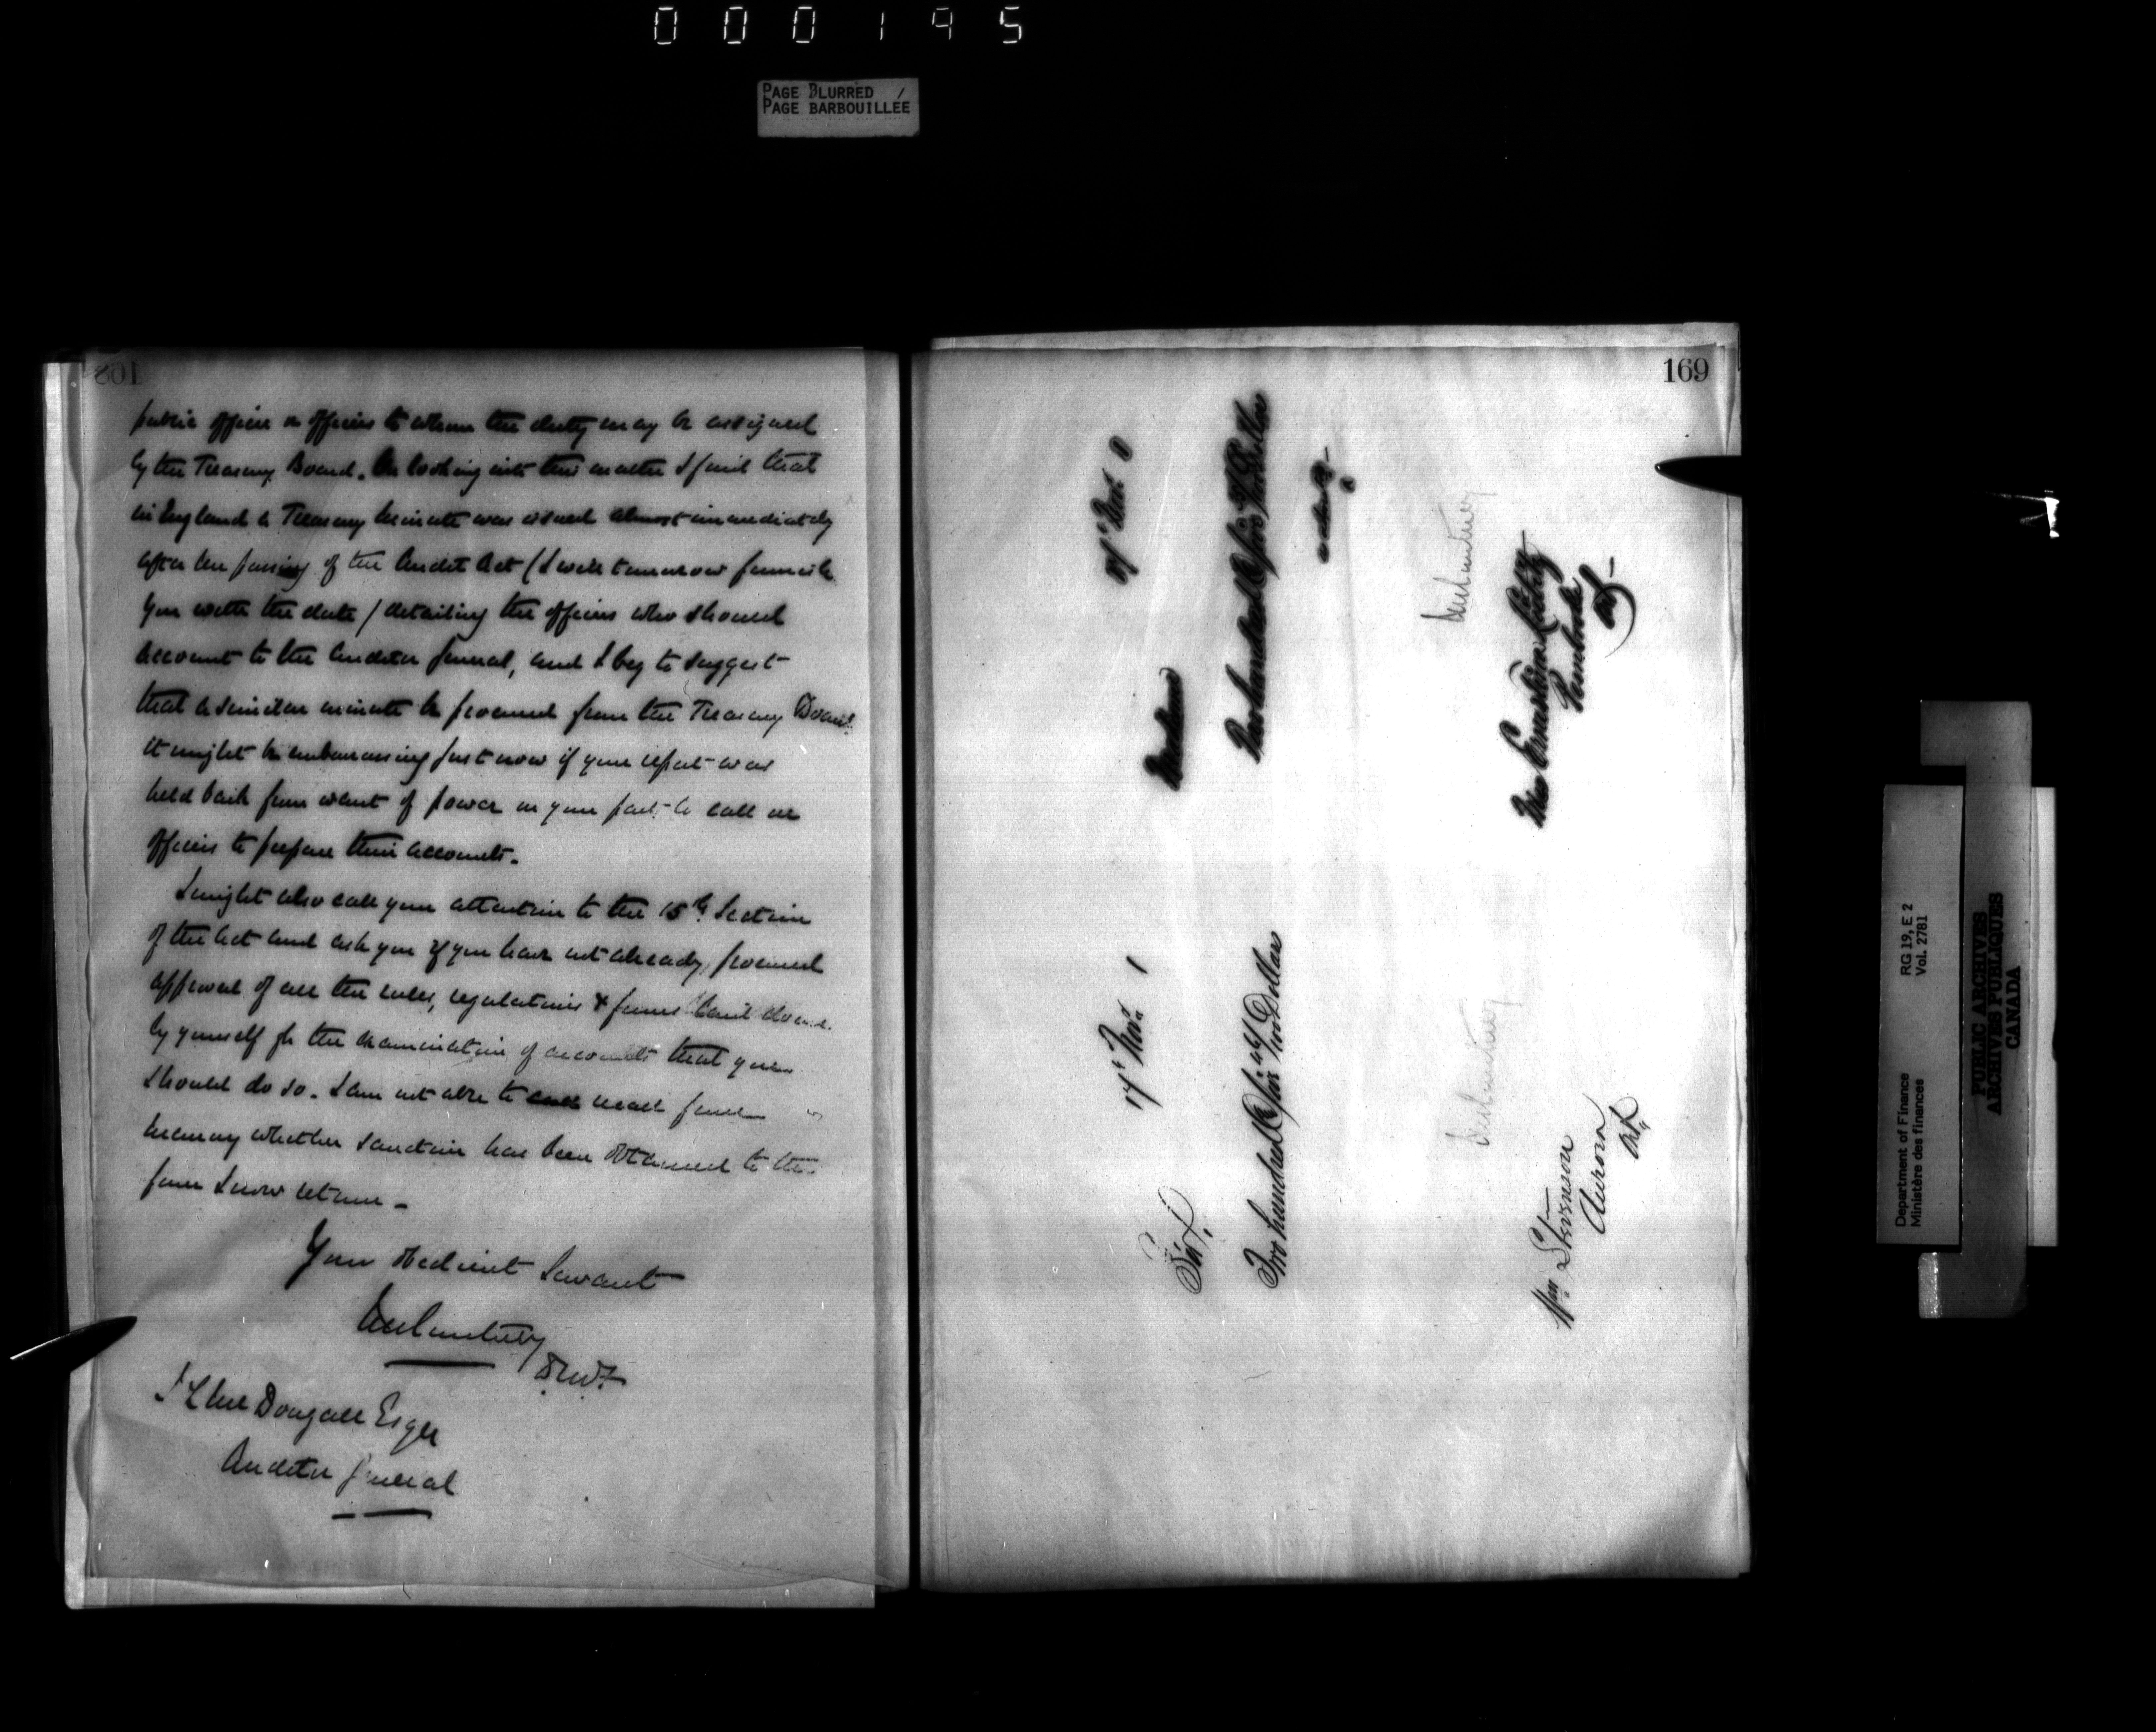 000195
PAGE BLURRED
PAGE BARBOUILLÉE
168
public officer or officers to whom the duty may be assigned
by the Treasury Board. On looking into this matter I find that
in England a Treasury Minute was issued almost immediately
after the passing of the Audit Act (I will tomorrow furnish
you with the date) detailing the officers who should
account to the Auditor General, and I beg to suggest
that a similar minute be procured from the Treasury Board.
it might be embarrassing just now if your report was
held back from want of power on your part to call on
officers to prepare their accounts.
I might also call your attention to the 15th Section
of the Act and ask you if you have not already procured
approval of all the rules, regulations & forms laid down
by yourself for the examination of accounts that you
should do so. I am not able to recall from
memory whether sanction has been obtained to the
form I now return -
Your obedient Servant
JM Courtney
D.M.F.
J L McDougall Esqre
Auditor General
169
17th Nov. 0
Madam
Two hundred & five Dollars
JM Courtney
Miss
Pembroke
Ont
17th Nov. 1
Sir,
Two hundred & six Dollars
JM Courtney
Wm Stevenson
Aurora
Ont
Department of Finance
Ministère des finances
RG 19, E 2
Vol. 2781
PUBLIC ARCHIVES
ARCHIVES PUBLIQUES
CANADA